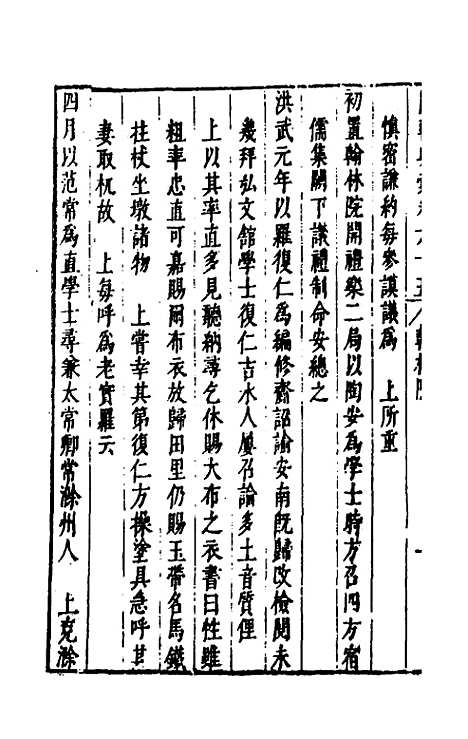 慎密謙約每參謨議爲　上所重
初置翰林院開禮樂二局以陶安爲學士時方召四方宿
儒集闕下議禮制命安總之
洪武元年以羅復仁爲編修齎詔諭安南旣歸改檢閱未
幾拜弘文館學士復仁吉水人屢召論多土音質俚
上以其率直多見聽納尋乞休賜大布之衣書曰性雖
粗率忠直可嘉賜爾布衣放歸田里仍賜玉帶名馬鐵
拄杖坐墩諸物　上嘗幸其第復仁方操塗具急呼其
妻取杌故　上每呼爲老實羅云
四月以范常爲直學士尋兼太常卿常滁州人　上克滁